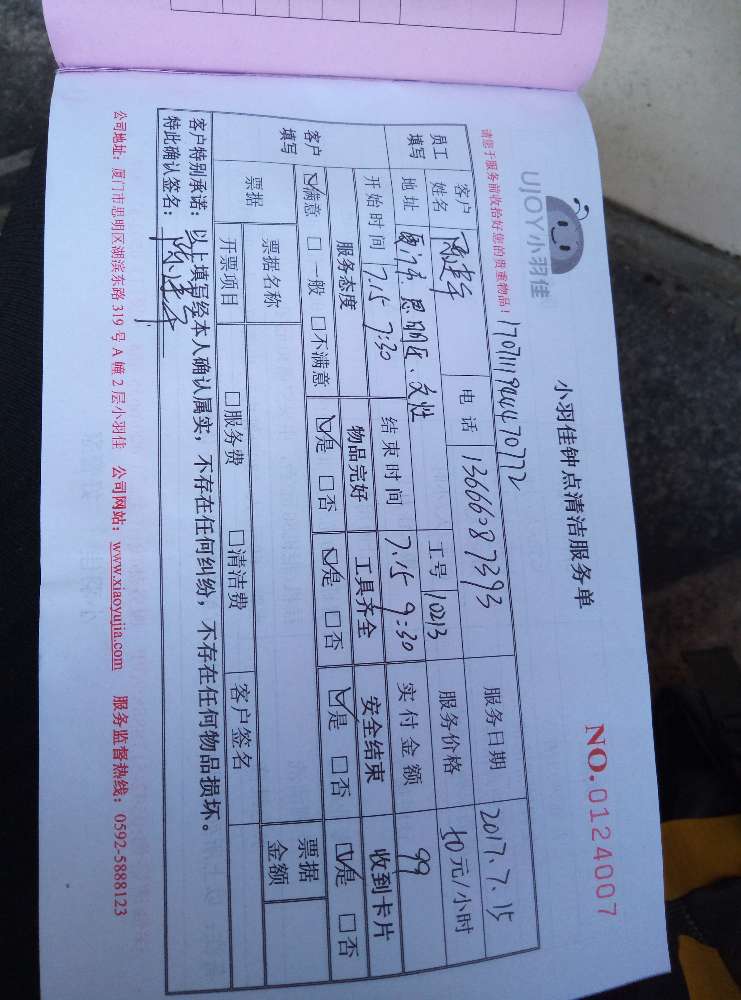 UJOY小羽佳
小羽佳钟点清洁服务单
NO.0124007
请您于服务前收拾好您的贵重物品！
员工填写 客户姓名 电话 服务日期 2017.7.15
地址 厦门市.思明区. 工号 10213 服务价格 50元/小时
开始时间 7.15 7:30 结束时间 7.15 9:30 实付金额 99
客户填写 服务态度 物品完好 工具齐全 安全结束 收到卡片
☑满意 □一般 □不满意 ☑是 □否 ☑是 □否 ☑是 □否 ☑是 □否
票据 票据名称 票据金额
开票项目 □服务费 □清洁费 客户签名
客户特别承诺：以上填写经本人确认属实，不存在任何纠纷，不存在任何物品损坏。
特此确认签名：
公司地址：厦门市思明区湖滨东路 319 号 A 幢 2 层小羽佳 公司网站：www.xiaoyujia.com 服务监督热线：0592-5888123